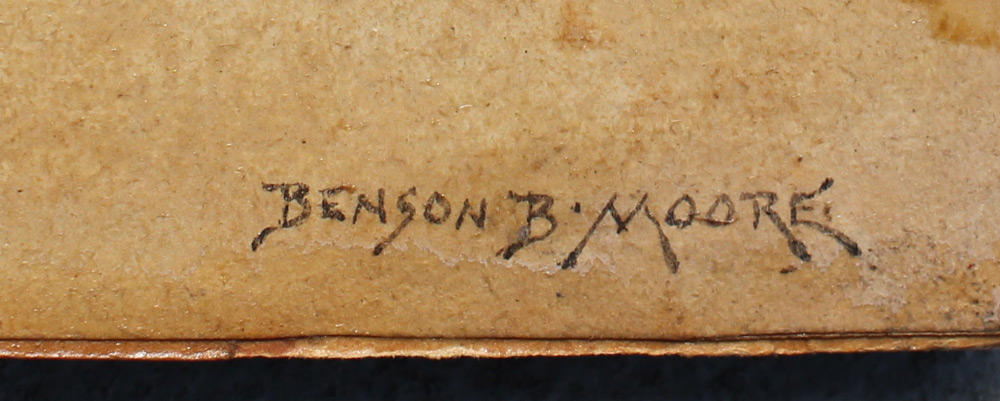 BENSON B. MOORE